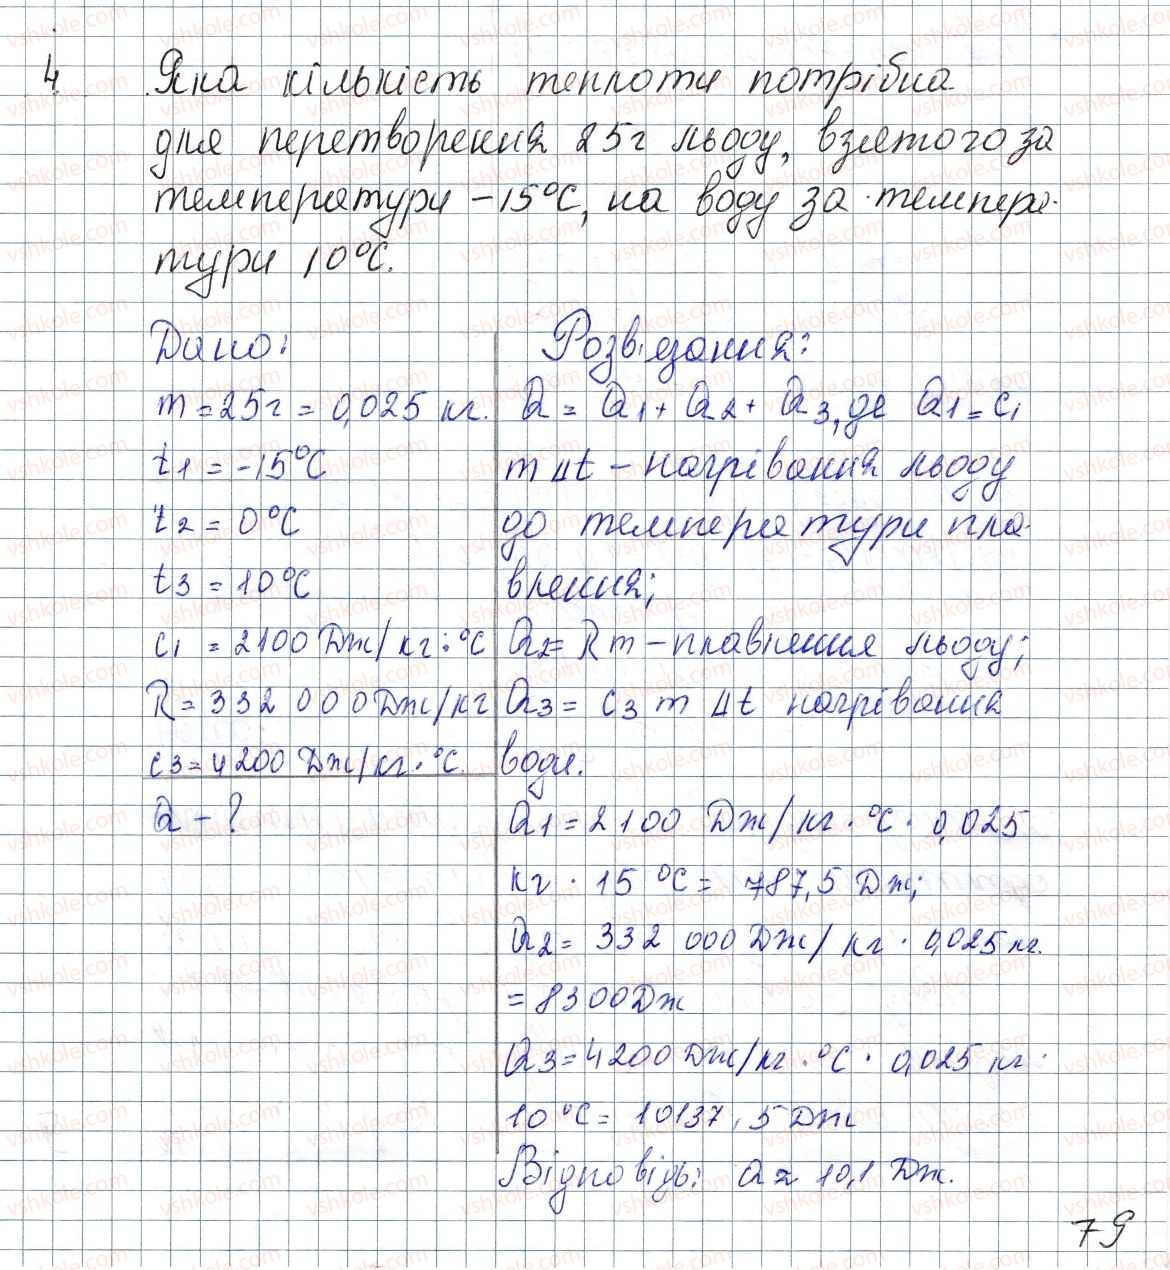 4 Яка кількість теплоти потрібна
для перетворення 25г льоду, взятого за
температури -15°C, на воду за темпера-
тури 10°C.
Дано:
m = 25г = 0,025 кг.
t1 = -15°C
t2 = 0°C
t3 = 10°C
c1 = 2100 Дж/кг·°C
R = 332 000 Дж/кг
c3 = 4200 Дж/кг·°C.
Q - ?
Розвязання:
Q = Q1 + Q2 + Q3, де Q1 = c1
m Δt - нагрівання льоду
до температури пла-
влення;
Q2 = Rm - плавлення льоду;
Q3 = c3 m Δt нагрівання
води.
Q1 = 2100 Дж/кг·°C · 0,025
кг · 15 °C = 787,5 Дж;
Q2 = 332 000 Дж/кг · 0,025 кг.
= 8300 Дж
Q3 = 4200 Дж/кг·°C · 0,025 кг ·
10 °C = 10137,5 Дж
Відповідь: Q ≈ 10,1 Дж.
79
vshkole.com